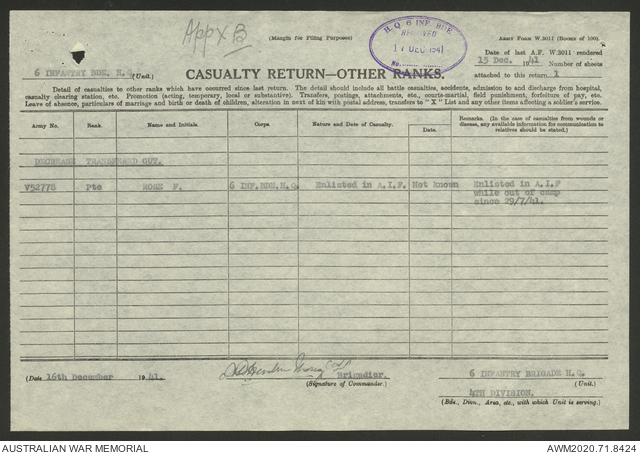 Appx B
(Margin for Filing Purposes)
H.Q. 6 INF. BDE
RECEIVED
17 DEC 1941
No.
ARMY FORM W.3011 (Books of 100).
Date of last A.F. W.3011 rendered
15 Dec. 1941 Number of sheets
attached to this return 1
6 INFANTRY BDE. H.Q. (Unit.)
CASUALTY RETURN—OTHER RANKS.
Detail of casualties to other ranks which have occurred since last return. The detail should include all battle casualties, accidents, admission to and discharge from hospital,
casualty clearing station, etc. Promotion (acting, temporary, local or substantive). Transfers, postings, attachments, etc., court-martial, field punishment, forfeiture of pay, etc.
Leave of absence, particulars of marriage and birth or death of children, alteration in next of kin with postal address, transfers to "X" List and any other items affecting a soldier's service.
Army No. Rank. Name and Initials. Corps. Nature and Date of Casualty. Date. Remarks. (In the case of casualties from wounds or
disease, any available information for communication to
relatives should be stated.)
DECREASE TRANSFERRED OUT.
V52778 Pte ROSE F. 6 INF.BDE.H.Q. Enlisted in A.I.F. Not known Enlisted in A.I.F
while out of camp
since 29/7/41.
(Date 16th December 1941.)
Brigadier.
(Signature of Commander.)
6 INFANTRY BRIGADE H.Q.
(Unit.)
4TH DIVISION.
(Bde., Divn., Area, etc., with which Unit is serving.)
AUSTRALIAN WAR MEMORIAL
AWM2020.71.8424